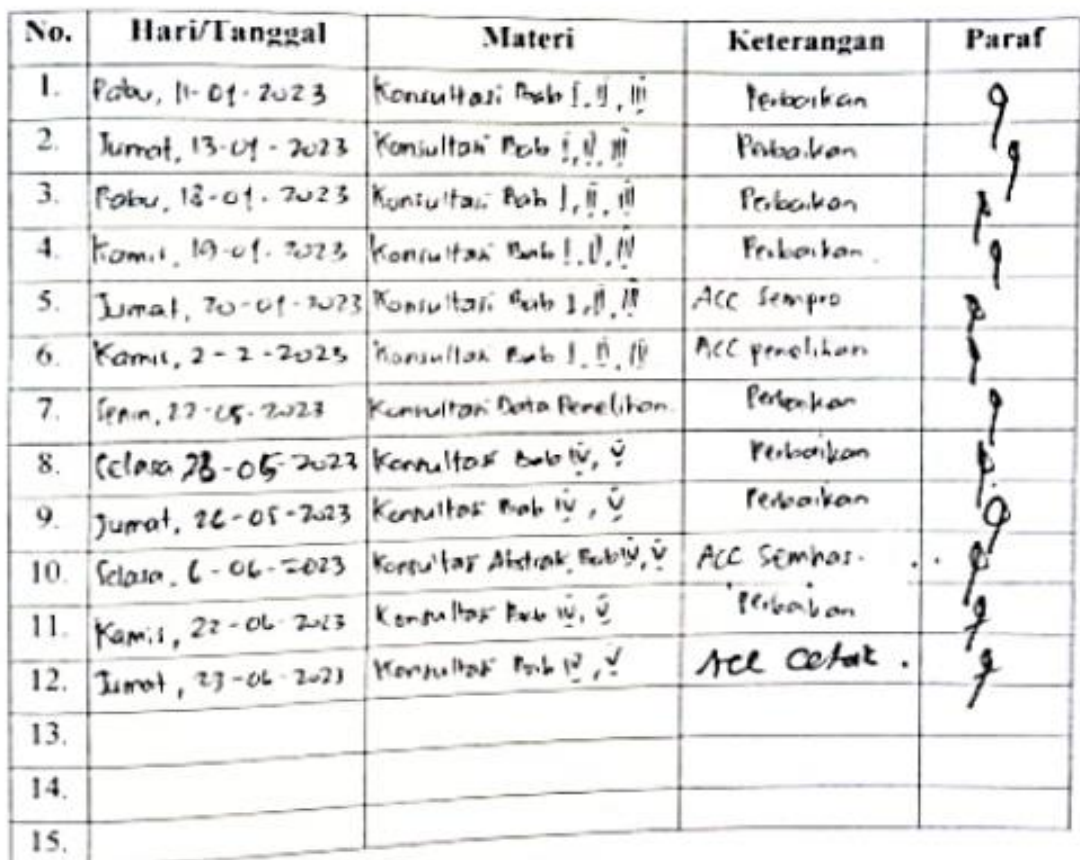 No. Hari/Tanggal Materi Keterangan Paraf
1. Rabu, 11-01-2023 Konsultasi Bab I, II, III Perbaikan
2. Jumat, 13-01-2023 Konsultasi Bab I, II, III Perbaikan
3. Rabu, 18-01-2023 Konsultasi Bab I, II, III Perbaikan
4. Kamis, 19-01-2023 Konsultasi Bab I, II, III Perbaikan
5. Jumat, 20-01-2023 Konsultasi Bab I, II, III ACC Sempro
6. Kamis, 2-2-2023 Konsultasi Bab I, II, III ACC penelitian
7. Senin, 22-05-2023 Konsultasi Data Penelitian Perbaikan
8. Selasa 23-05-2023 Konsultasi Bab IV, V Perbaikan
9. Jumat, 26-05-2023 Konsultasi Bab IV, V Perbaikan
10. Selasa, 6-06-2023 Konsultasi Abstrak, Bab IV, V ACC Semhas.
11. Kamis, 22-06-2023 Konsultasi Bab IV, V Perbaikan
12. Jumat, 23-06-2023 Konsultasi Bab IV, V ACC Cetak.
13.
14.
15.